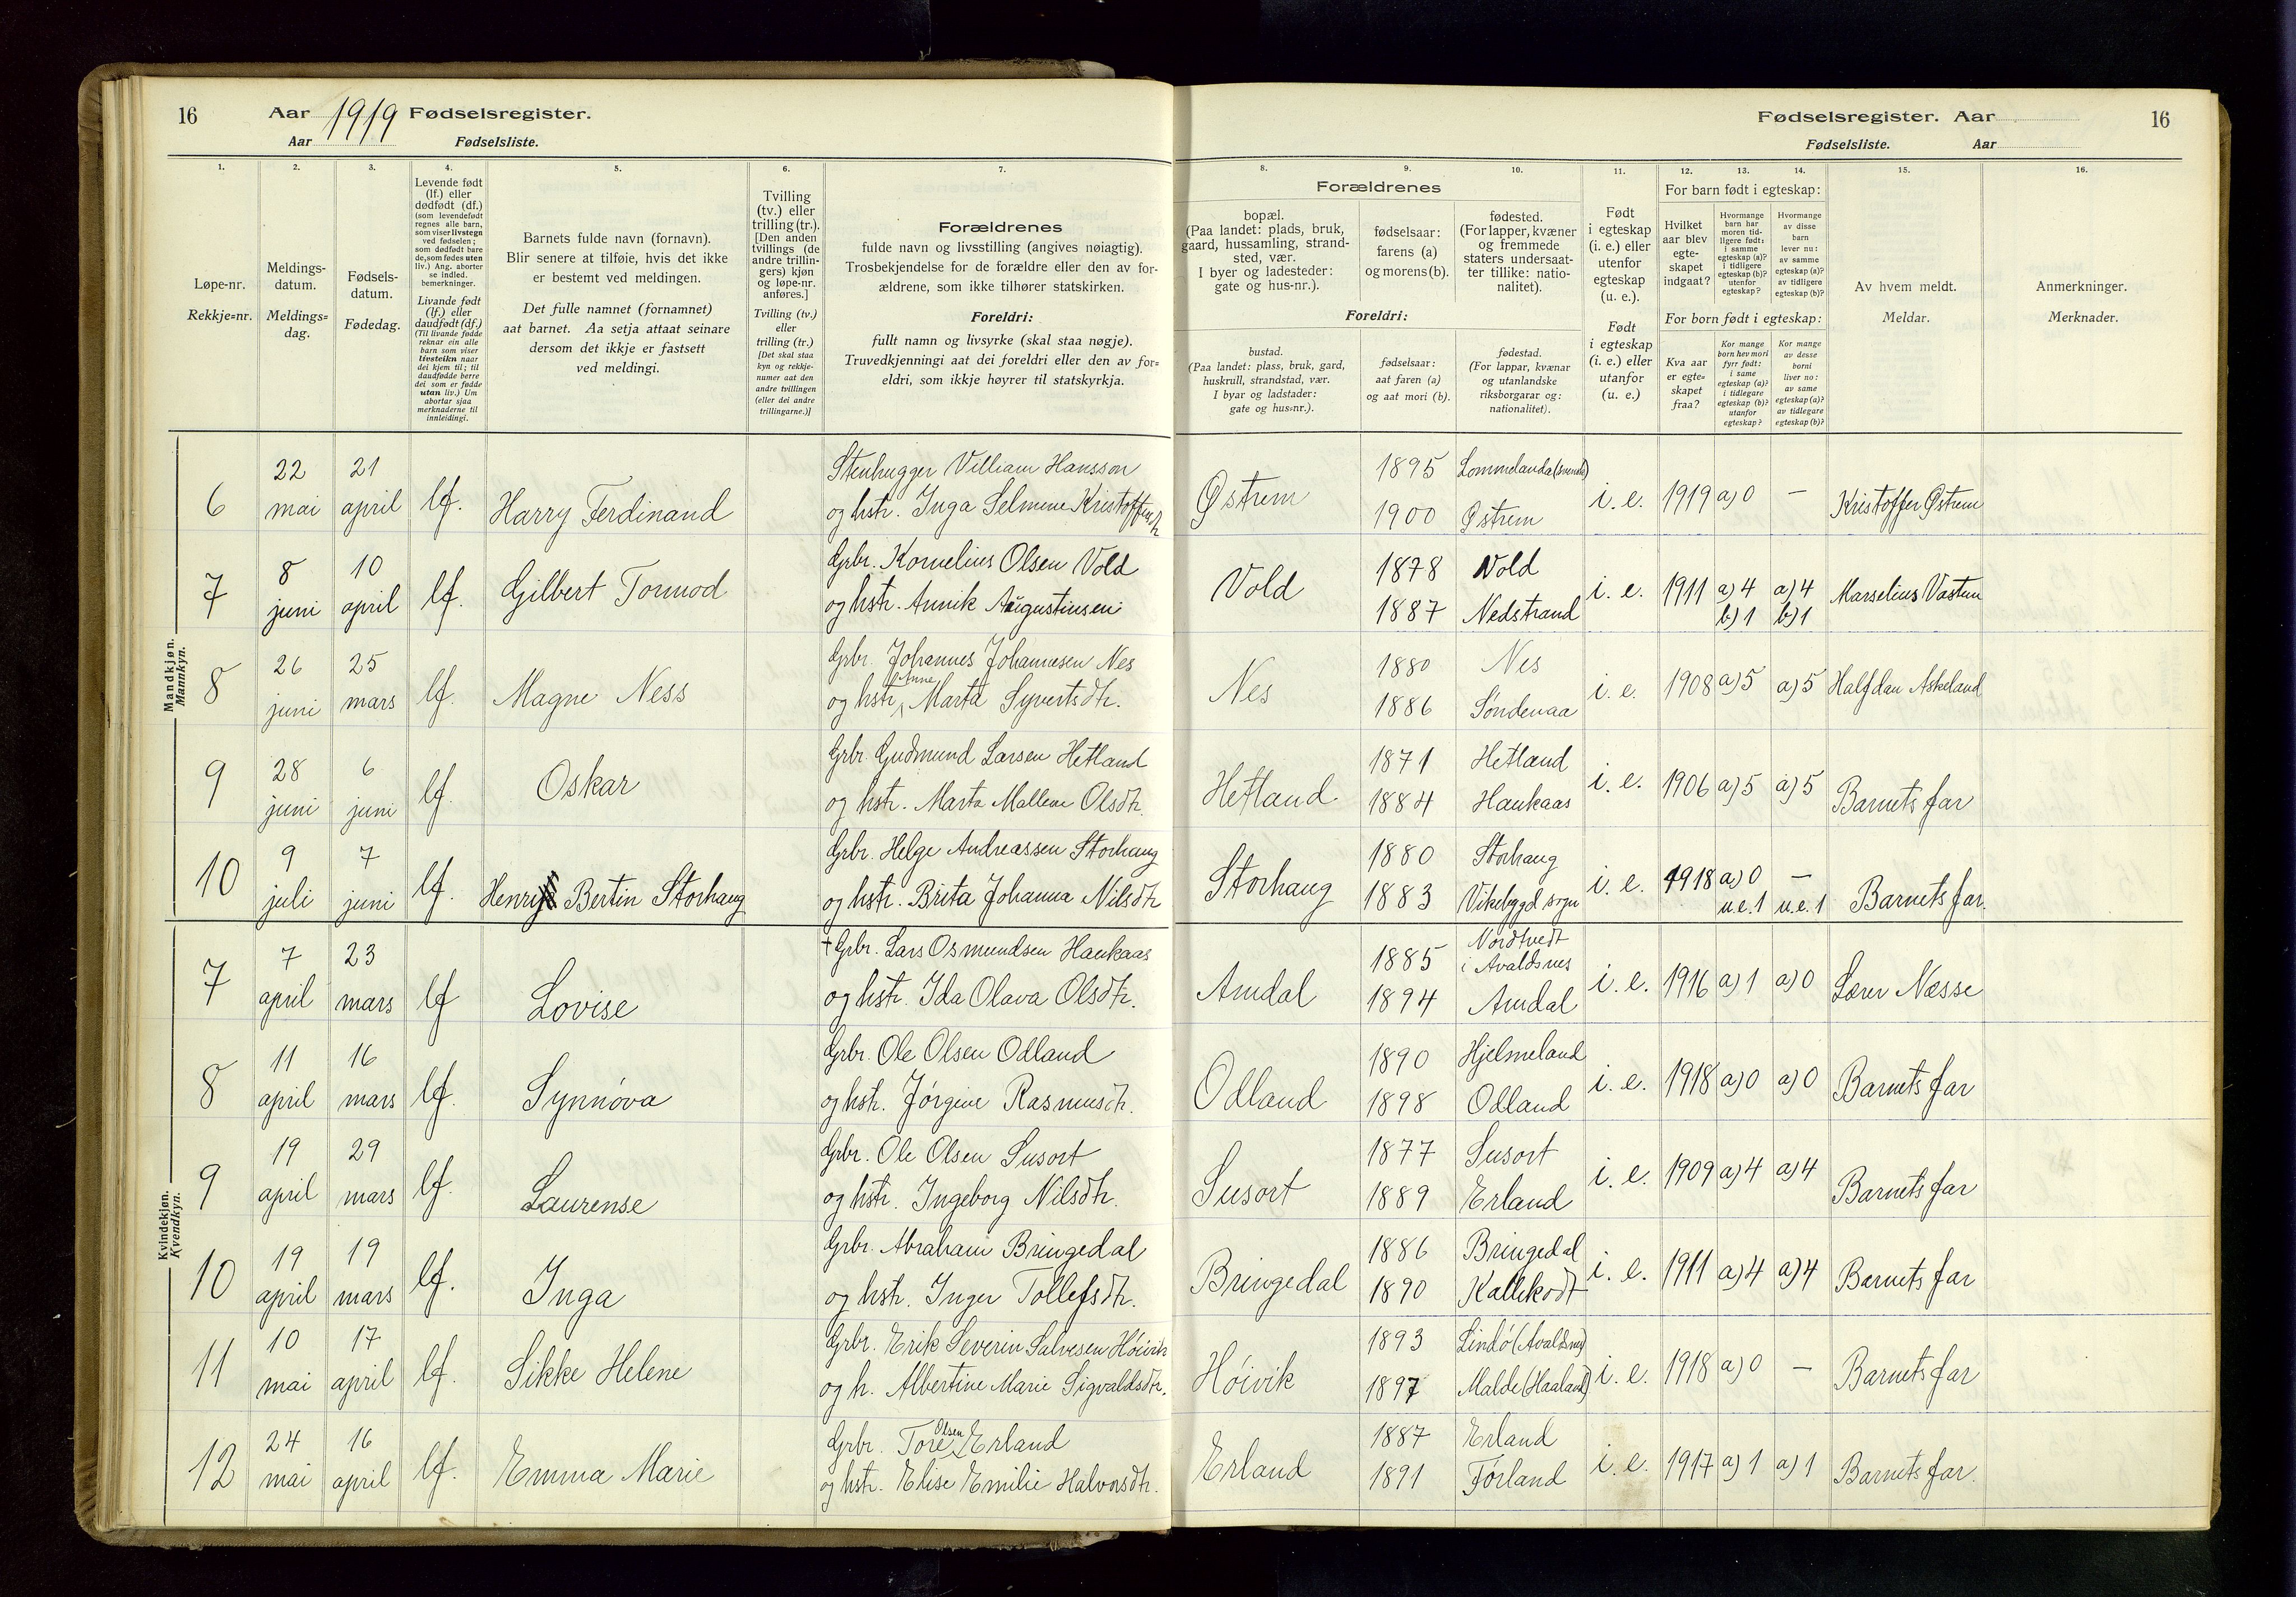 16 Aar 1919 Fødselsregister.
Aar Fødselsliste.
Fødselsregister. Aar 16
Fødselsliste. Aar
1. 2. 3. 4. 5. 6. 7.
8. 9. 10. 11. 12. 13. 14. 15. 16.
Løpe-nr.
Rekkje=nr.
Meldings-
datum.
Meldings=
dag.
Fødsels-
datum.
Fødedag.
Levende født
(lf.) eller
dødfødt (df.)
(som levendefødt
regnes alle barn,
som viser livstegn
ved fødselen;
som dødfødt bare
de, som fødes uten
liv.) Ang. aborter
se indled.
bemerkninger.
Livande født
(lf.) eller
daudfødt (df.)
(Til livande fødde
reknar ein alle
barn som viser
livsteikn naar
dei kjem til; til
daudfødde berre
dei som er fødde
utan liv.) Um
abortar sjaa
merknaderne til
innleidingi.
Barnets fulde navn (fornavn).
Blir senere at tilføie, hvis det ikke
er bestemt ved meldingen.
Det fulle namnet (fornamnet)
aat barnet. Aa setja attaat seinare
dersom det ikkje er fastsett
ved meldingi.
Tvilling
(tv.) eller
trilling (tr.).
[Den anden
tvillings (de
andre trillin-
gers) kjøn
og løpe-nr.
anføres.]
Tvilling (tv.)
eller
trilling (tr.)
[Det skal staa
kyn og rekkje-
numer aat den
andre tvillingen
(eller dei andre
trillingarne.)]
Forældrenes
fulde navn og livsstilling (angives nøiagtig).
Trosbekjendelse for de forældre eller den av for-
ældrene, som ikke tilhører statskirken.
Foreldri:
fullt namn og livsyrke (skal staa nøgje).
Truvedkjenningi aat dei foreldri eller den av for=
eldri, som ikkje høyrer til statskyrkja.
Forældrenes
bopæl.
(Paa landet: plads, bruk,
gaard, hussamling, strand-
sted, vær.
I byer og ladesteder:
gate og hus-nr.).
Foreldri:
bustad.
(Paa landet: plass, bruk, gard,
huskrull, strandstad, vær.
I byar og ladstader:
gate og hus=nr.).
fødselsaar:
farens (a)
og morens (b).
fødselsaar:
aat faren (a)
og aat mori (b).
fødested.
(For lapper, kvæner
og fremmede
staters undersaat-
ter tillike: natio-
nalitet).
fødestad.
(For lappar, kvænar
og utanlandske
riksborgarar og:
nationalitet).
Født
i egteskap
(i. e.) eller
utenfor
egteskap
(u. e.).
Født
i egteskap
(i. e.) eller
utanfor
(u. e.)
For barn født i egteskap:
Hvilket
aar blev
egte-
skapet
indgaat?
Hvormange
barn har
moren tid-
ligere født:
i samme
egteskap (a)?
i tidligere
egteskap (b)?
utenfor
egteskap?
Hvormange
av disse
barn
lever nu:
av samme
egteskap (a)?
av tidligere
egteskap (b)?
For born født i egteskap:
Kva aar
er egte=
skapet
fraa?
Kor mange
born hev mori
fyrr født:
i same
egteskap (a)?
i tidlegare
egteskap (b)?
utanfor
egteskap?
Kor mange
av desse
borni
liver no:
av same
egteskap (a)?
av tidlegare
egteskap (b)?
Av hvem meldt.
Meldar.
Anmerkninger.
Merknader.
Mandkjøn.
Mannkyn.
6 22 mai 21 april lf. Harry Ferdinand Stenhugger Villiam Hansson
og hstr. Inga Selmine Kristoffersdtr.
Østrem 1895 Lommelanda (svensk)
1900 Østrem
i. e. 1919 a) 0 – Kristoffer Østrem
7 8 juni 10 april lf. Gilbert Tormod Grbr. Kornelius Olsen Vold
og hstr. Annik Augustinsen
Vold 1878 Vold
1887 Nedstrand
i. e. 1911 a) 4 a) 4
b) 1 b) 1
Marselius Vastun
8 26 juni 25 mars lf. Magne Ness Grbr. Johannes Johannesen Nes
og hstr. Anne Marta Syvertsdtr.
Nes 1880 Nes
1886 Söndenaa
i. e. 1908 a) 5 a) 5 Halfdan Askeland
9 28 juni 6 juni lf. Oskar Grbr. Gudmund Larsen Hetland
og hstr. Marta Mallene Olsdtr.
Hetland 1871 Hetland
1884 Haukaas
i. e. 1906 a) 5 a) 5 Barnets far
10 9 juli 7 juni lf. Henry Bertin Storhaug Grbr. Helge Andreassen Storhaug
og hstr. Brita Johanna Nilsdtr
Storhaug 1880 Storhaug
1883 Vikebygd sogn
i. e. 1918 a) 0 –
u.e. 1 u.e. 1
Barnets far.
Kvindekjøn.
Kvendkyn.
7 7 april 23 mars lf Lovise + Grbr. Lars Osmundsen Haukaas
og hstr. Ida Olava Olsdtr.
Amdal 1885 Nordtvedt
i Avaldsnes
1894 Amdal
i. e. 1916 a) 1 a) 0 Lærer Næsse
8 11 april 16 mars lf. Synnöva Grbr. Ole Olsen Odland
og hstr. Jörgine Rasmusdtr.
Odland 1890 Hjelmeland
1898 Odland
i. e. 1918 a) 0 a) 0 Barnets far
9 19 april 29 mars lf. Laurense Grbr. Ole Olsen Susort
og hstr. Ingeborg Nilsdtr.
Susort 1877 Susort
1889 Erland
i. e. 1909 a) 4 a) 4 Barnets far
10 19 april 19 mars lf. Inga Grbr. Abraham Bringedal
og hstr. Inger Tollefsdtr.
Bringedal 1886 Bringedal
1890 Kallekodt
i. e. 1911 a) 4 a) 4 Barnets far
11 10 mai 17 april lf. Sikke Helene Grbr. Erik Severin Salvesen Höivik
og h. Albertine Marie Sigvaldsdtr.
Höivik 1893 Lindö (Avaldsnes)
1897 Malde (Haaland)
i. e. 1918 a) 0 – Barnets far
12 24 mai 16 april lf. Emma Marie Grbr. Tore Olsen Erland
og hstr. Elise Emilie Halvorsdtr.
Erland 1887 Erland
1891 Förland
i. e. 1917 a) 1 a) 1 Barnets far.